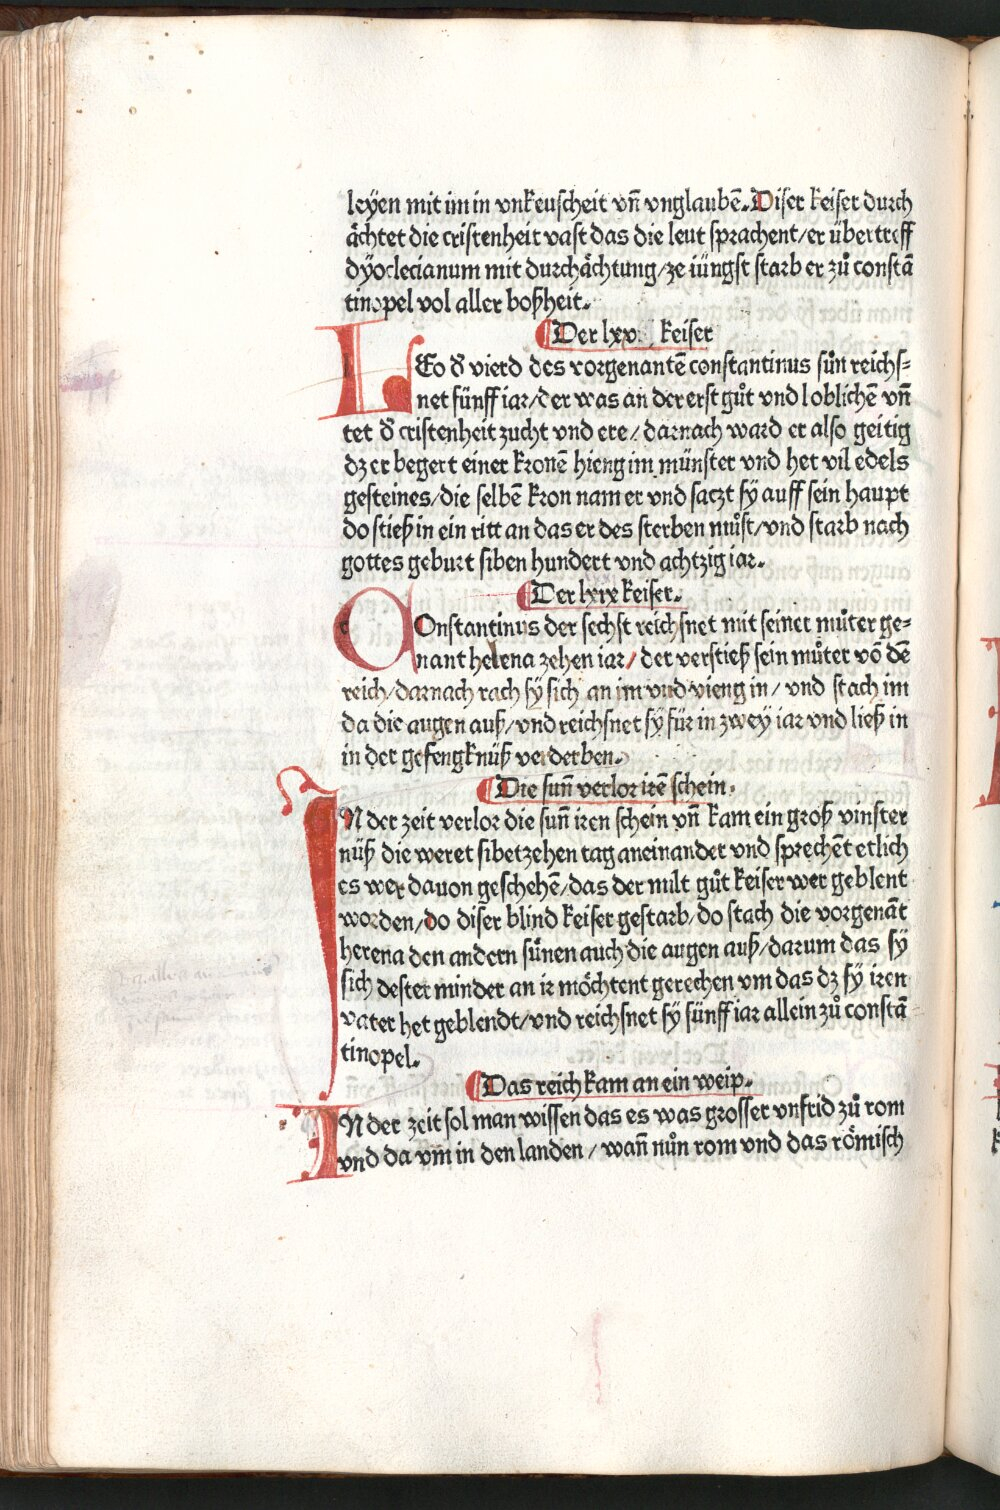 leyen mit im in vnkeuſcheit vn̄ vnglaubē. Diſer keiſer durch
ächtet die criſtenheit vaſt das die leut ſprachent/er übertreff
dÿoclecianum mit durchächtung/ze iüngſt ſtarb er zů conſtā
tinopel vol aller boßheit.
Der lxv keiſer
LEo d̕ vierd des vorgenantē conſtantinus ſůn reichſ⸗
net fünff iar/der was an der erſt gůt vnd loblichē vn̄
tet d̕ criſtenheit zucht vnd ere/darnach ward er alſo geitig
dz er begert einer kronē hieng im münſter vnd het vil edels
geſteines/die ſelbē kron nam er vnd ſaczt ſÿ auff ſein haupt
do ſtieß in ein ritt an das er des ſterben můſt/vnd ſtarb nach
gottes geburt ſiben hundert vnd achtzig iar.
Der lxix keiſer.
COnſtantinus der ſechſt reichſnet mit ſeiner můter ge⸗
nant helena zehen iar/der verſtieß ſein můter vō dē
reich/darnach rach ſÿ ſich an im vnd vieng in/vnd ſtach im
da die augen auß/vnd reichſnet ſÿ für in zweÿ iar vnd ließ in
in der gefengknüß verderben.
Die ſun̄ verlor irē ſchein.
IN der zeit verlor die ſun̄ iren ſchein vn̄ kam ein groß vinſter
nüß die weret ſibetzehen tag aneinander vnd ſprechēt etlich
es wer dauon geſchehē/das der milt gůt keiſer wer geblent
worden/do diſer blind keiſer geſtarb/do ſtach die vorgenāt
herena den andern ſünen auch die augen auß/darum das ſÿ
ſich deſter minder an ir möchtent gerechen vm das dz ſÿ iren
vater het geblendt/vnd reichſnet ſÿ fünff iar allein zů conſtā
tinopel.
Das reich kam an ein weip.
IN der zeit ſol man wiſſen das es was groſſer vnfrid zů rom
vnd da vm̄ in den landen/wan̄ nůn rom vnd das römiſch